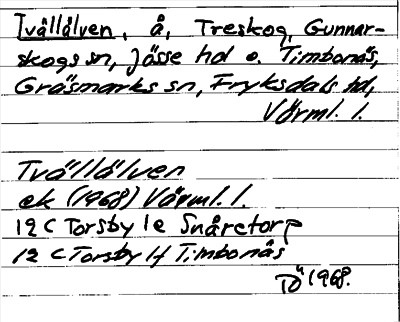 Tvällälven, å, Treskog, Gunnar-
skogs sn, Jösse hd o. Timbonäs,
Gräsmarks sn, Fryksdals hd,
Värml. l.
Tvällälven
ek (1968) Värml. l.
12 C Torsby 1e Snåretorp
12 C Torsby 1f Timbonäs
1968.